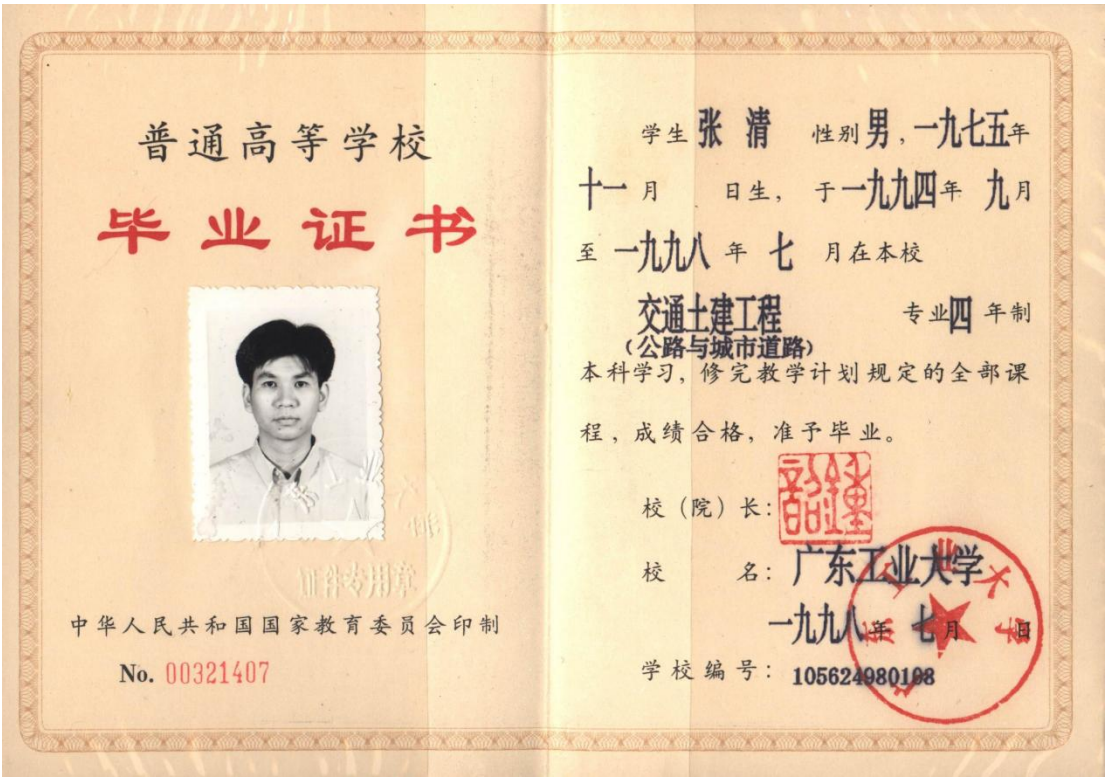 普通高等学校
毕业证书
证件专用章
中华人民共和国国家教育委员会印制
No. 00321407
学生 张 清 性别 男，一九七五年
十一月 日生，于一九九四年 九月
至 一九九八 年 七 月在本校
交通土建工程 专业四 年制
（公路与城市道路）
本科学习，修完教学计划规定的全部课
程，成绩合格，准予毕业。
校（院）长：
校 名：广东工业大学
一九九八年 七月 日
学校编号：105624980108
广东工业大学